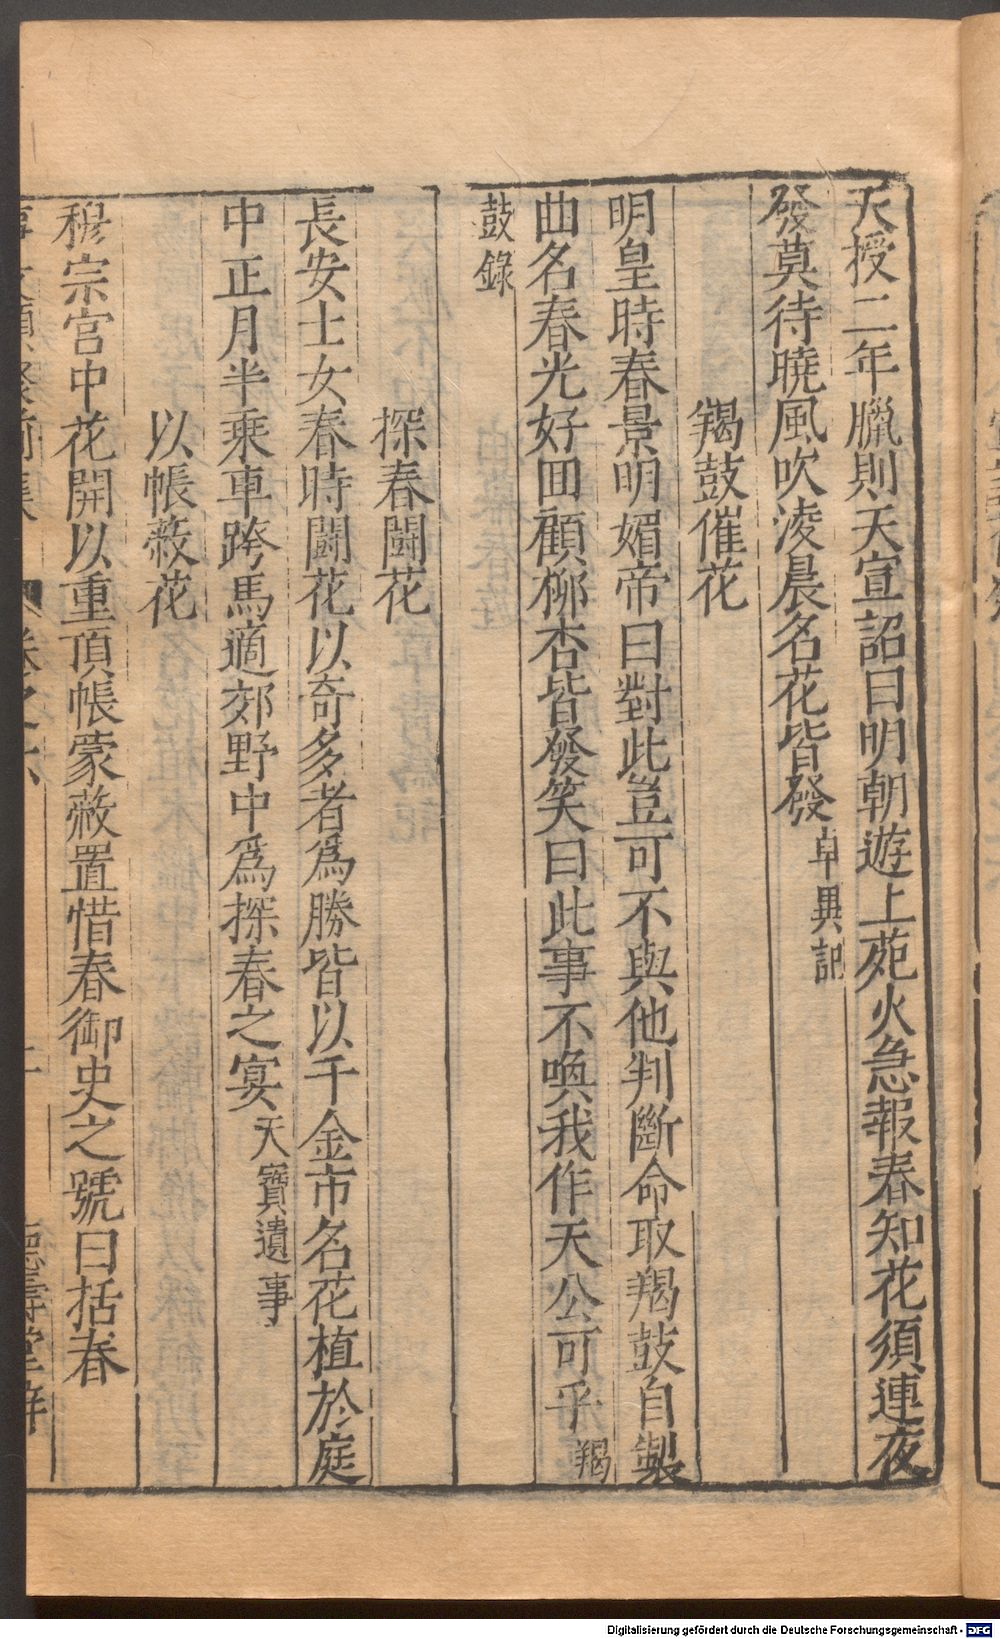 天授二年臘則天宣詔曰明朝遊上苑火急報春知花須連夜
發莫待曉風吹淩晨名花皆發卓異記
羯鼓催花
明皇時春景明媚帝曰對此豈可不與他判斷命取羯鼓自製
曲名春光好回顧柳杏皆發笑曰此事不喚我作天公可乎羯
鼓錄
探春鬪花
長安士女春時鬪花以奇多者爲勝皆以千金市名花植於庭
中正月半乘車跨馬適郊野中爲探春之宴天寶遺事
以帳蔽花
穆宗宮中花開以重頂帳蒙蔽置惜春御史之號曰括春
卷之六
德壽堂梓
Digitalisierung gefördert durch die Deutsche Forschungsgemeinschaft - DFG